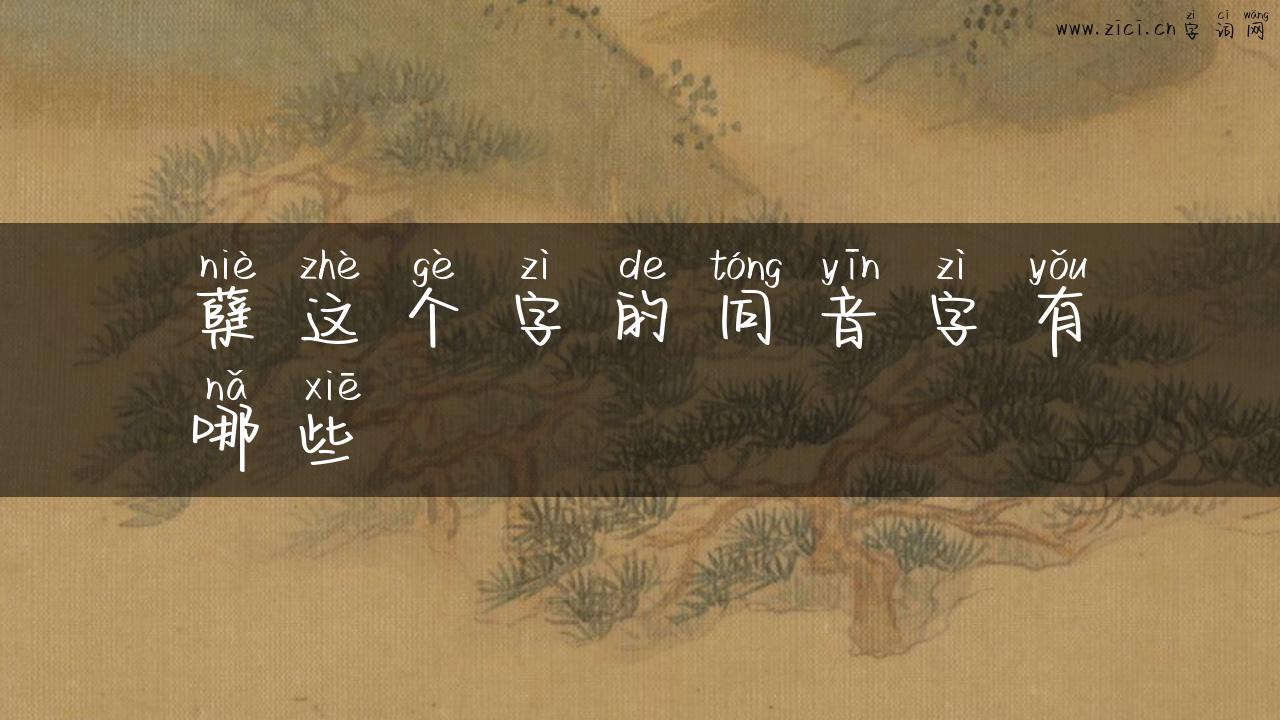 zì cí wǎng
www.zici.cn 字词网
niè zhè gè zì de tóng yīn zì yǒu
孽这个字的同音字有
nǎ xiē
哪些